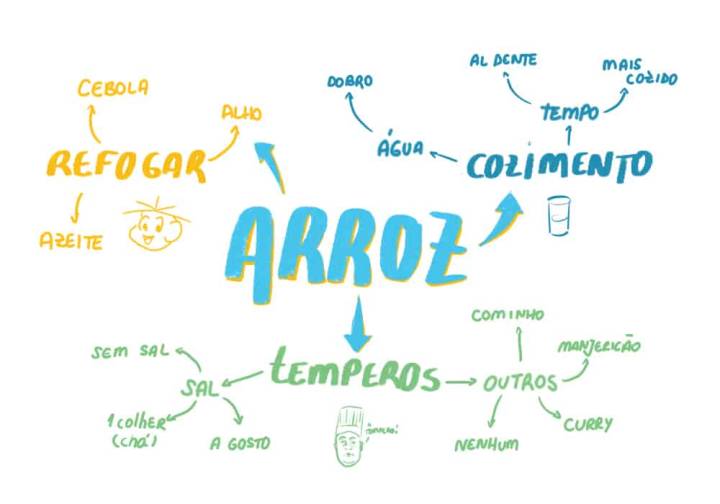 CEBOLA
ALHO
REFOGAR
AZEITE
DOBRO
ÁGUA
AL DENTE
MAIS
COZIDO
TEMPO
COZIMENTO
ARROZ
TEMPEROS
SEM SAL
SAL
1 COLHER
(chá)
A GOSTO
COMINHO
MANJERICÃO
OUTROS
NENHUM
CURRY